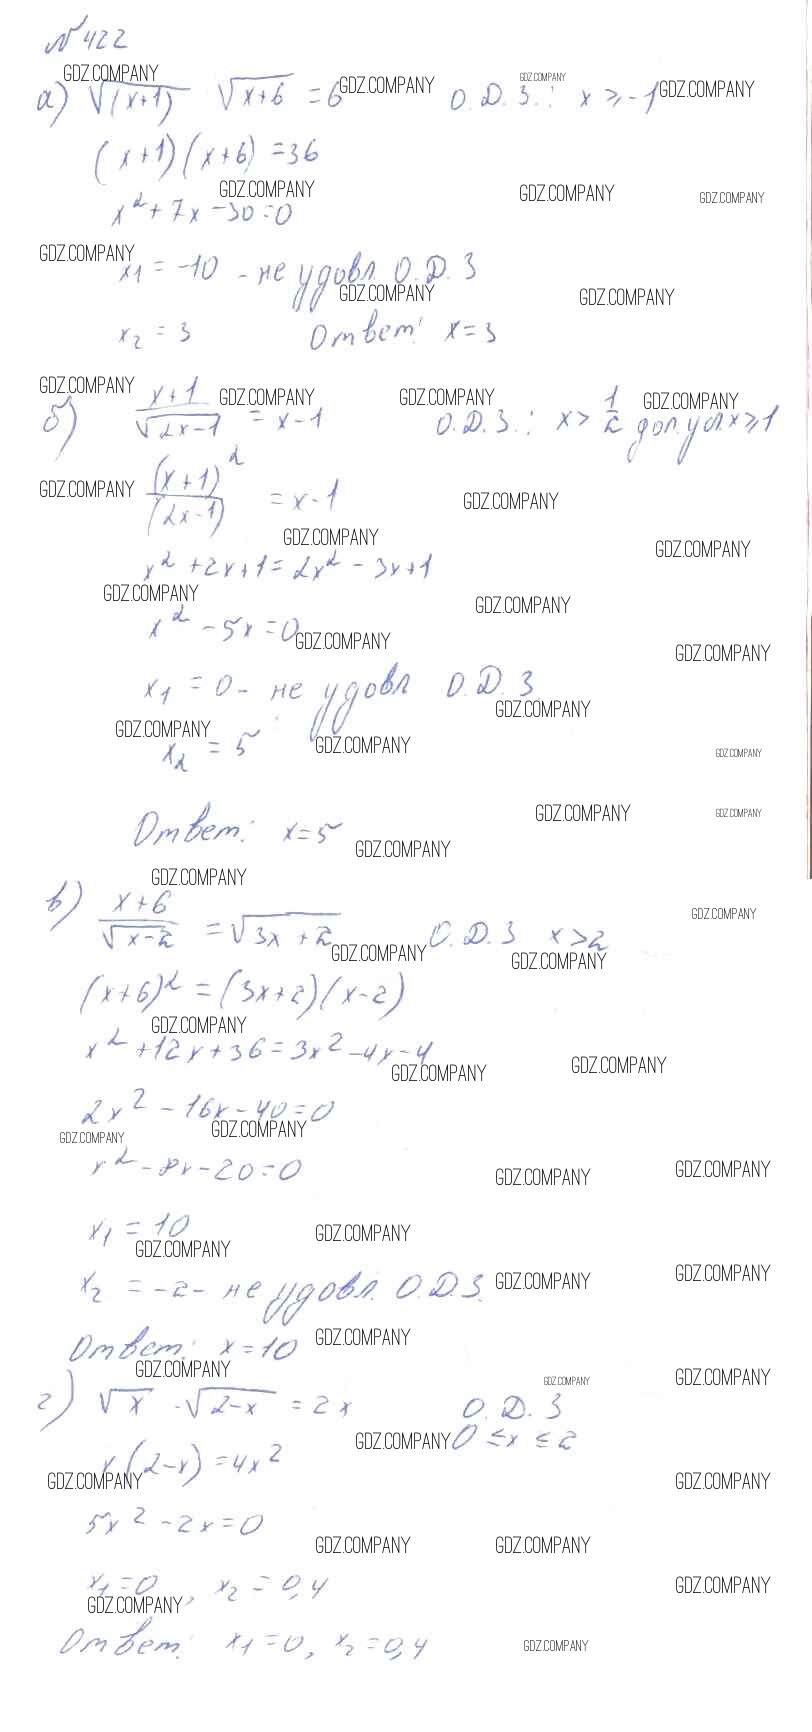 №422
GDZ.COMPANY
а) √(x+1) √x+6 = 6 GDZ.COMPANY О.Д.З.: x ≥ -1 GDZ.COMPANY GDZ.COMPANY
(x+1)(x+6) = 36
GDZ.COMPANY GDZ.COMPANY GDZ.COMPANY
x² + 7x - 30 = 0
GDZ.COMPANY
x₁ = -10 - не удовл. О.Д.З
GDZ.COMPANY GDZ.COMPANY
x₂ = 3 Ответ: x = 3
GDZ.COMPANY GDZ.COMPANY GDZ.COMPANY GDZ.COMPANY
б) x+1/√2x-1 = x-1 О.Д.З.: x > 1/2 доп.усл. x ≥ 1
GDZ.COMPANY (x+1)²/(2x-1) = x-1 GDZ.COMPANY
GDZ.COMPANY GDZ.COMPANY
x² + 2x + 1 = 2x² - 3x + 1
GDZ.COMPANY GDZ.COMPANY
x² - 5x = 0 GDZ.COMPANY GDZ.COMPANY
x₁ = 0 - не удовл О.Д.З.
GDZ.COMPANY GDZ.COMPANY
x₂ = 5 GDZ.COMPANY GDZ.COMPANY
GDZ.COMPANY GDZ.COMPANY
Ответ: x = 5 GDZ.COMPANY
GDZ.COMPANY
в) x+6/√x-2 = √3x+2 О.Д.З x > 2 GDZ.COMPANY
GDZ.COMPANY GDZ.COMPANY
(x+6)² = (3x+2)(x-2)
GDZ.COMPANY
x² + 12x + 36 = 3x² - 4x - 4
GDZ.COMPANY GDZ.COMPANY
2x² - 16x - 40 = 0
GDZ.COMPANY GDZ.COMPANY
x² - 8x - 20 = 0 GDZ.COMPANY GDZ.COMPANY
x₁ = 10 GDZ.COMPANY
GDZ.COMPANY
x₂ = -2 - не удовл. О.Д.З. GDZ.COMPANY GDZ.COMPANY
Ответ: x = 10 GDZ.COMPANY
GDZ.COMPANY GDZ.COMPANY GDZ.COMPANY
г) √x · √2-x = 2x О.Д.З
GDZ.COMPANY 0 ≤ x ≤ 2
x(2-x) = 4x²
GDZ.COMPANY GDZ.COMPANY
5x² - 2x = 0
GDZ.COMPANY GDZ.COMPANY
x₁ = 0, x₂ = 0,4 GDZ.COMPANY
GDZ.COMPANY
Ответ: x₁ = 0, x₂ = 0,4 GDZ.COMPANY